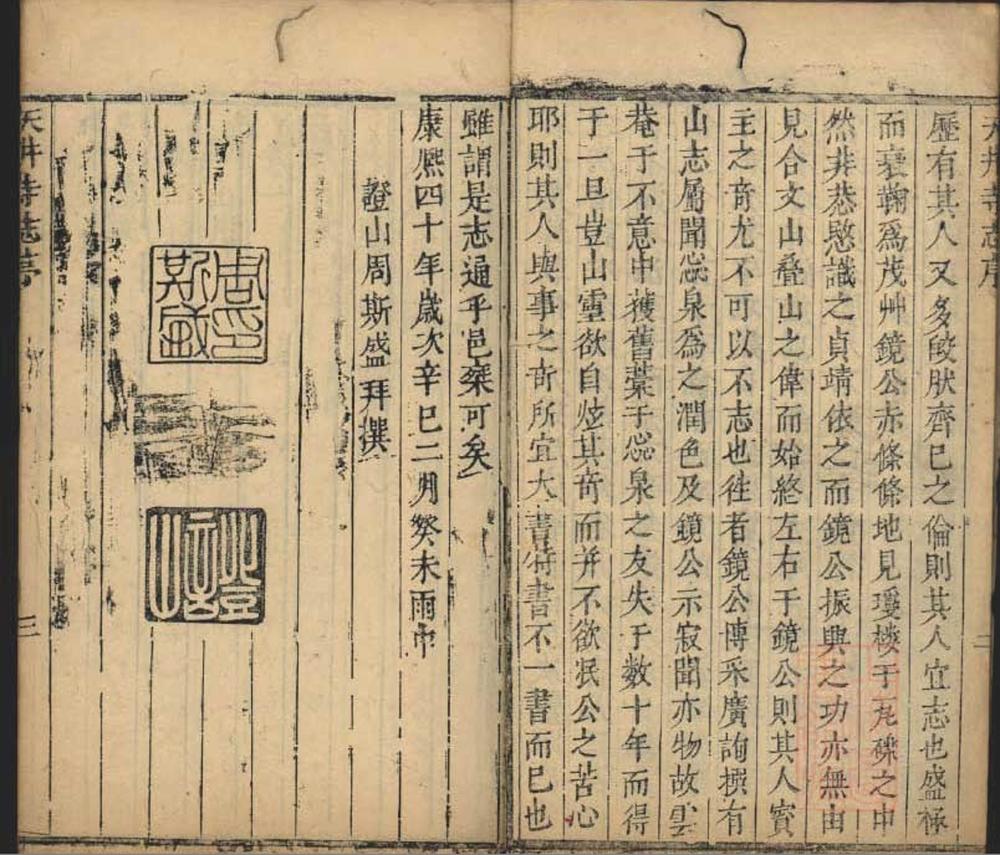 天井寺志序
歷有其人又多皎肰齊已之倫則其人宜志也盛極
而衰鞠爲茂艸鏡公赤條條地見瓊樓于瓦礫之中
然非恭愍識之貞靖依之而鏡公振興之功亦無由
見合文山疊山之偉而始終左右于鏡公則其人實
主之奇尤不可以不志也徃者鏡公博采廣詢撰有
山志屬聞惢泉爲之潤色及鏡公示寂聞亦物故雲
菴于不意中獲舊藁于惢泉之友失于數十年而得
于一旦豈山靈欲自炫其奇而并不欲泯公之苦心
耶則其人與事之奇所宜大書特書不一書而已也
雖謂是志通乎邑椉可矣
康熈四十年歲次辛巳二月癸未雨中
證山周斯盛拜撰
周斯盛印
證山
天井寺志序
三